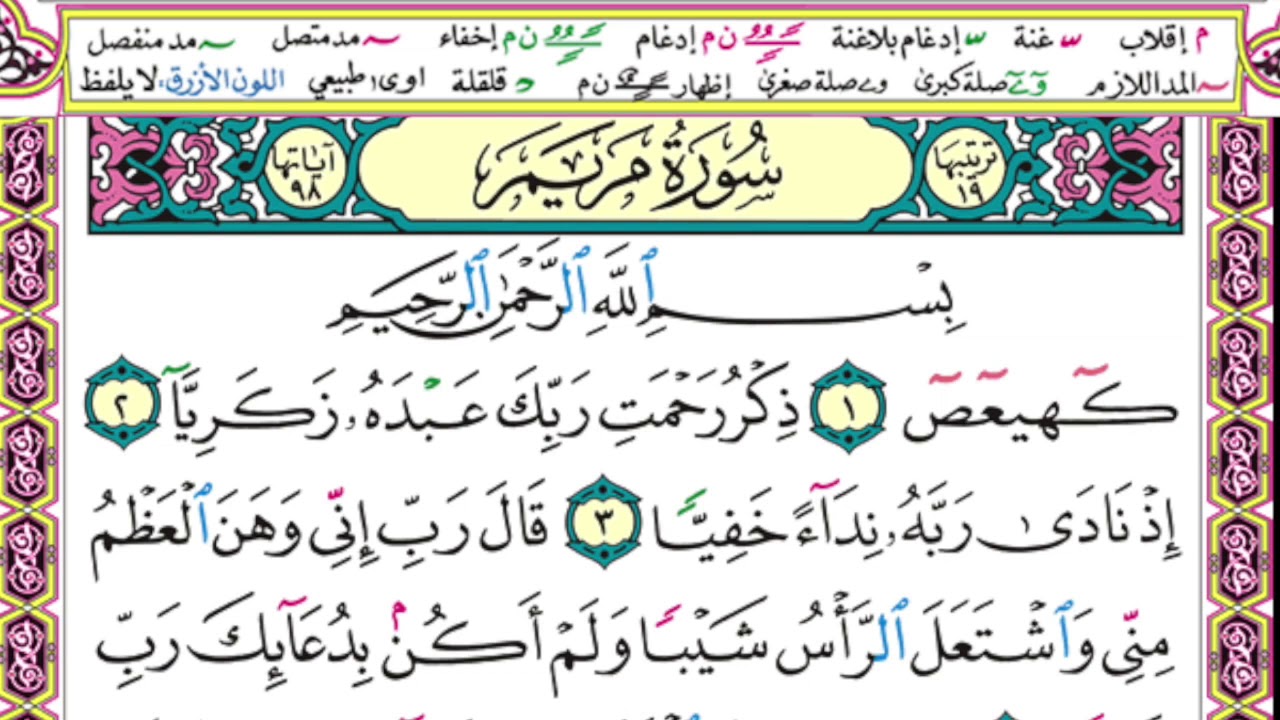 م إقلاب ـّـ غنة ـً إدغام بلاغنة ـًـٍـٌ ن م إدغام ـًـٍـٌ ن م إخفاء ~ مد متصل ~ مد منفصل
~ المد اللازم وۤ ےۤ صلة كبرىٰ و ے صلة صغرىٰ إظهار ن م د قلقلة ا و ى طبيعي اللون الأزرق، لا يلفظ
ترتيبها ١٩ سُورَةُ مَرْيَمَ آياتها ٩٨
بِسْمِ ٱللَّهِ ٱلرَّحْمَٰنِ ٱلرَّحِيمِ
كٓهيعٓصٓ ١ ذِكْرُ رَحْمَتِ رَبِّكَ عَبْدَهُۥ زَكَرِيَّآ ٢
إِذْ نَادَىٰ رَبَّهُۥ نِدَآءً خَفِيًّا ٣ قَالَ رَبِّ إِنِّى وَهَنَ ٱلْعَظْمُ
مِنِّى وَٱشْتَعَلَ ٱلرَّأْسُ شَيْبًا وَلَمْ أَكُنۢ بِدُعَآئِكَ رَبِّ